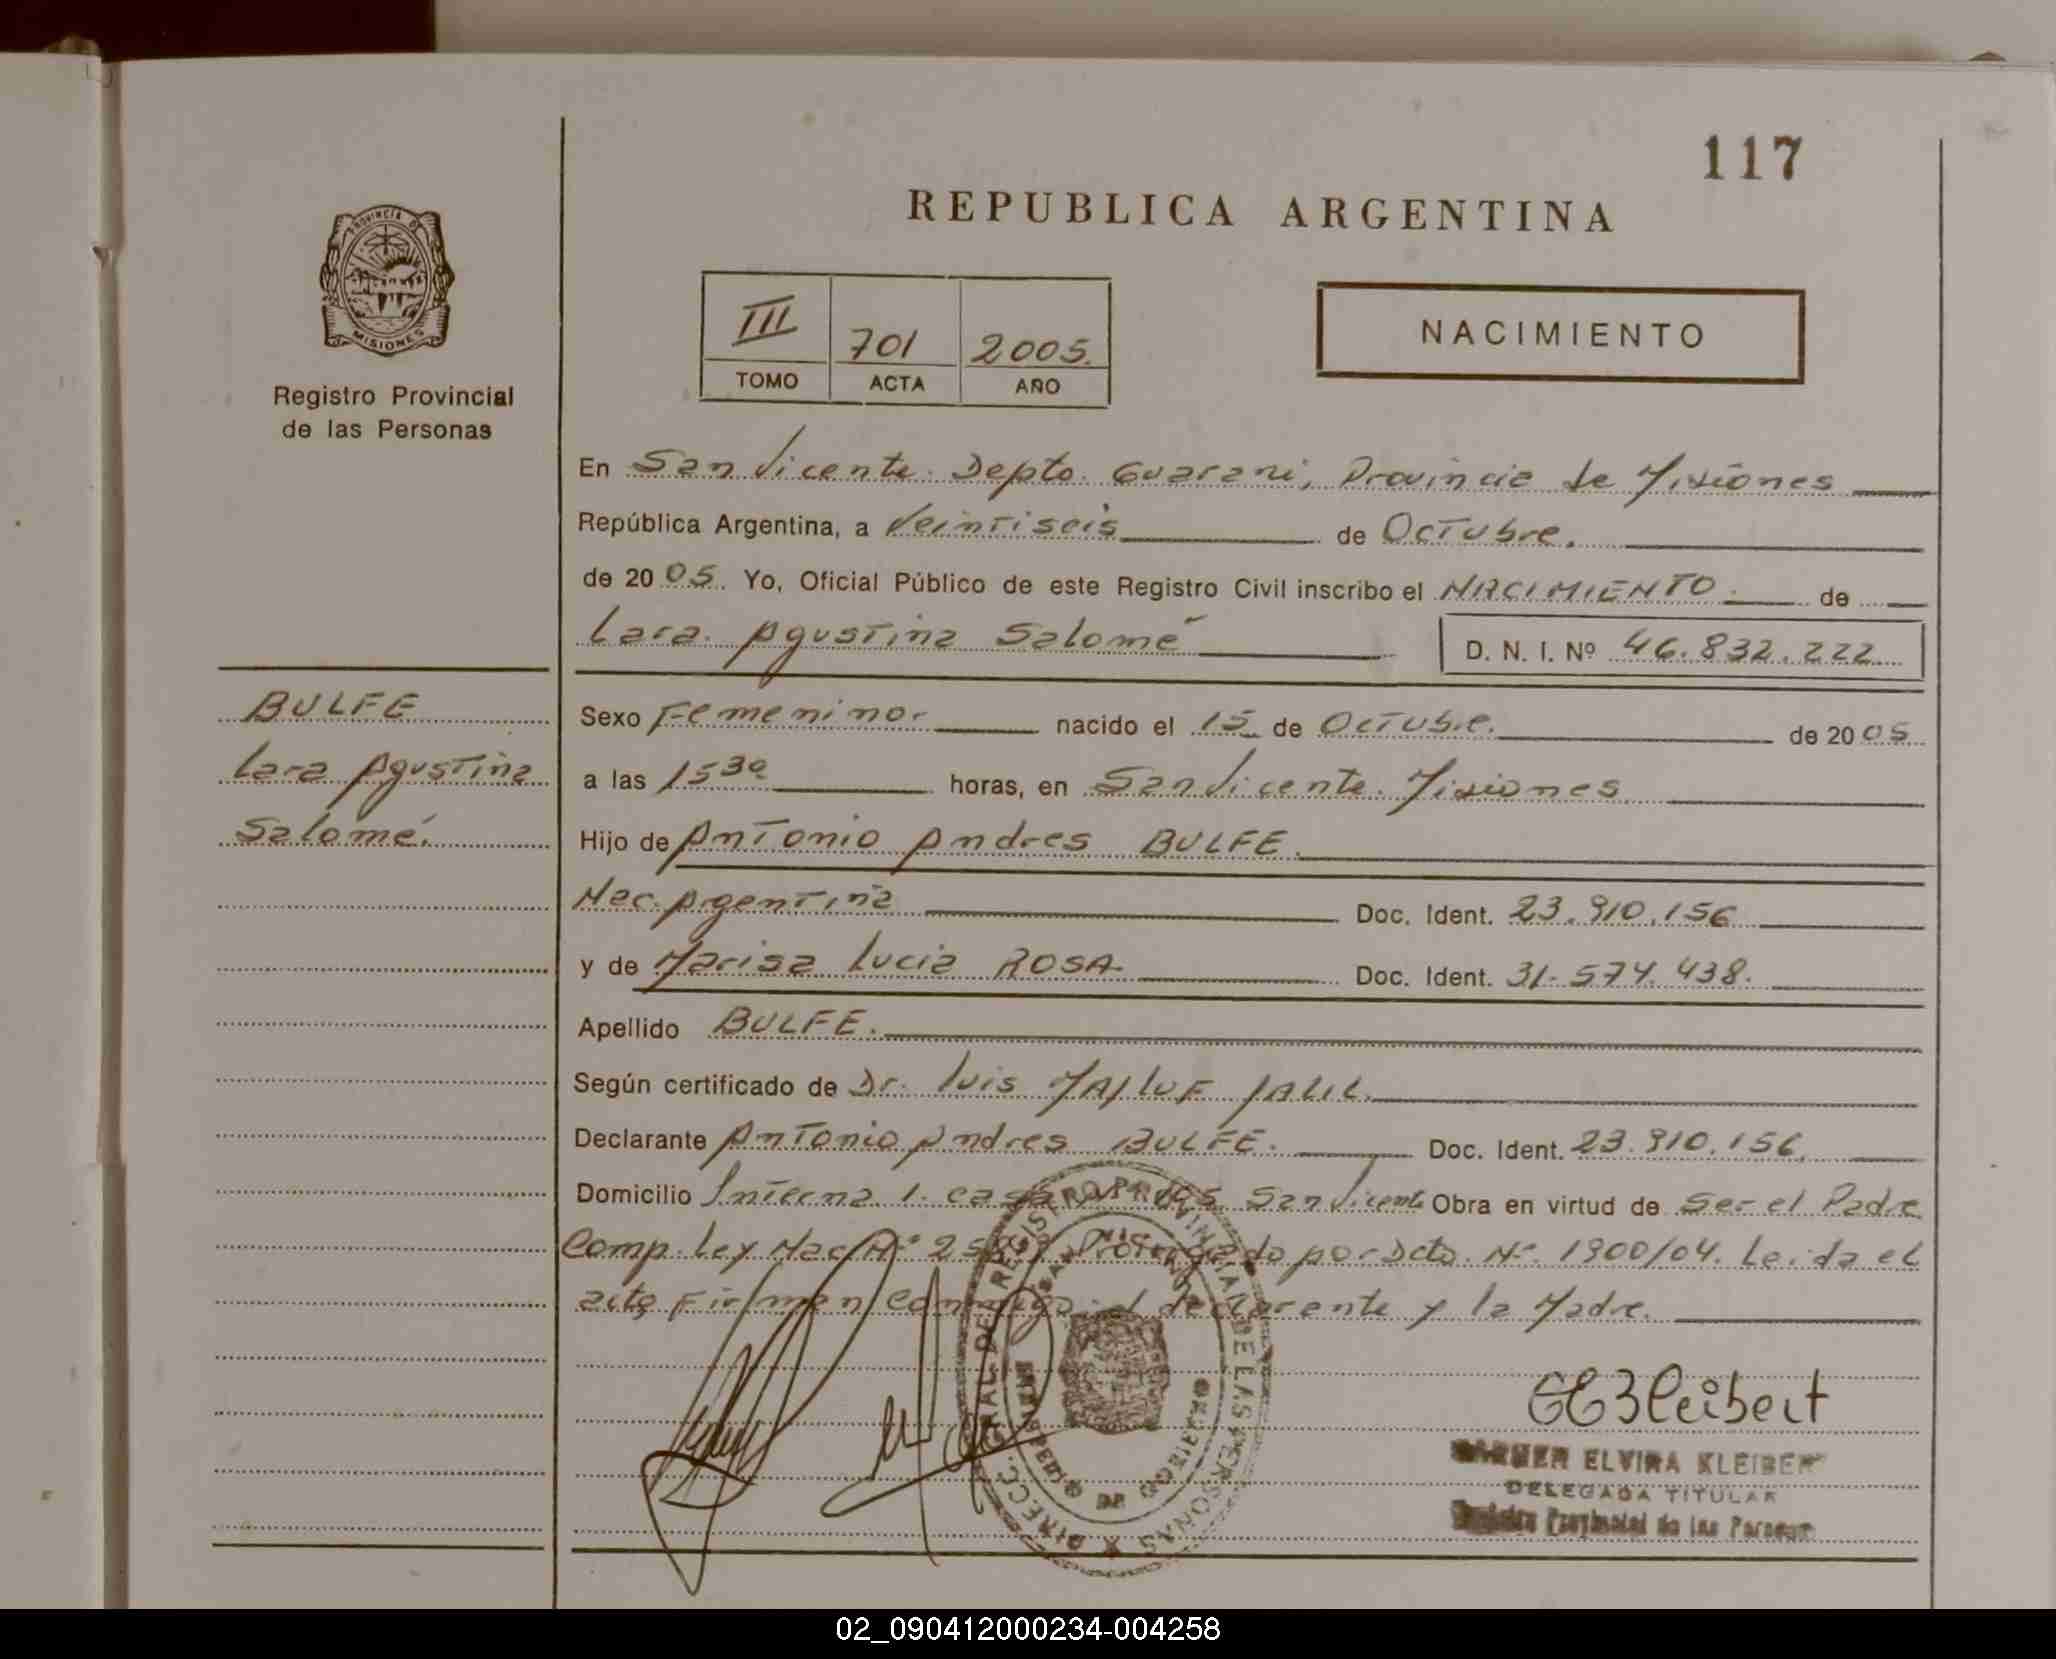 117
REPUBLICA ARGENTINA
PROVINCIA DE
MISIONES
Registro Provincial
de las Personas
III 701 2005.
TOMO ACTA AÑO
NACIMIENTO
En San Vicente. Depto. Guarani, Provincia de Misiones
República Argentina, a Veintiseis de Octubre.
de 2005. Yo, Oficial Público de este Registro Civil inscribo el NACIMIENTO de
Lara Agustina Salomé D. N. I. Nº 46.832.222
BULFE
Lara Agustina
Salomé.
Sexo Femenino. nacido el 15 de Octubre. de 2005
a las 15 30 horas, en San Vicente. Misiones
Hijo de Antonio Andres BULFE.
Nac. Argentina Doc. Ident. 23.910.156
y de Marisa Lucia ROSA Doc. Ident. 31.574.438.
Apellido BULFE.
Según certificado de Dr. Luis JALIL.
Declarante Antonio Andres BULFE. Doc. Ident. 23.910.156
Domicilio Interna 1. casa San Vicente Obra en virtud de Ser el Padre
Comp. Ley Nac Nº Prorrogado por Dcto. Nº 1900/04. Leida el
acta Firman conmigo el declarante y la Madre.
DIRECC. GRAL. DEL REGISTRO PROVINCIAL DE LAS PERSONAS
SAN VICENTE
DE GOBIERNO
ELVIRA KLEIBERT
DELEGADA TITULAR
Provincial de las Personas
02_090412000234-004258